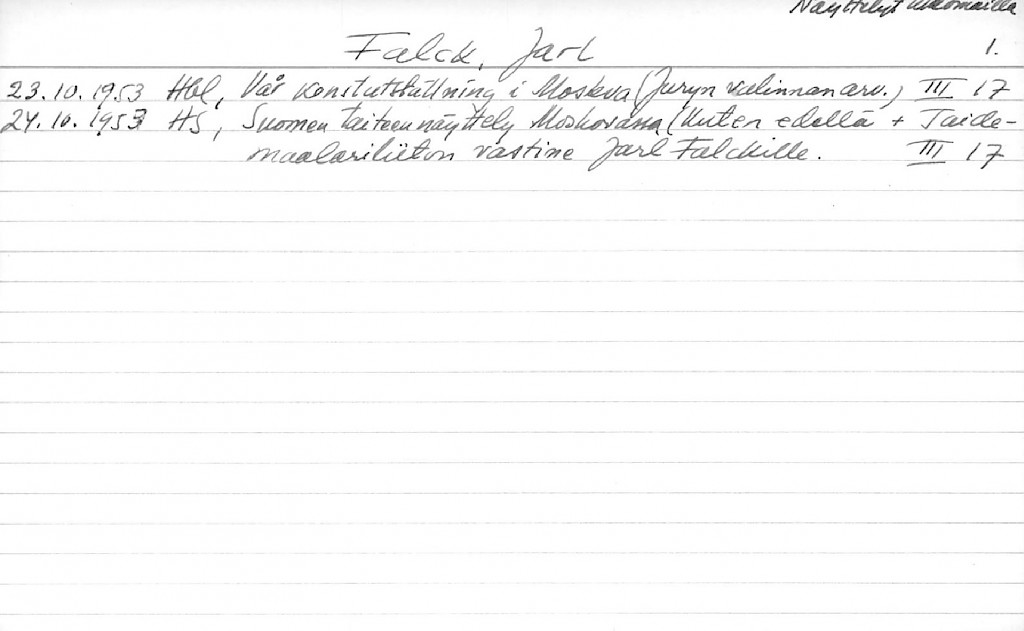 Näyttelyt ulkomailla
Falck, Jarl 1.
23.10.1953 Hbl, Vår konstutställning i Moskva (Juryn valinnan arv.) III 17
24.10.1953 HS, Suomen taiteen näyttely Moskovassa (Kuten edellä + Taide-
maalariliiton vastine Jarl Falckille. III 17